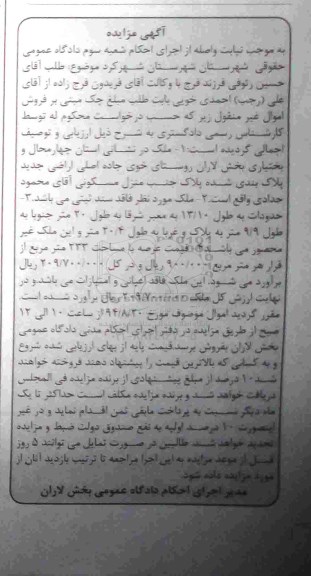 آگهی مزایده
به موجب نیابت واصله از اجرای احکام شعبه سوم دادگاه عمومی
حقوقی شهرستان شهرستان شهرکرد موضوع: طلب آقای
حسین رئوفی فرزند فرج با وکالت آقای فریدون فرج زاده از آقای
علی (رجب) احمدی خویی بابت طلب مبلغ چک مبنی بر فروش
اموال غیر منقول زیر که حسب درخواست محکوم له توسط
کارشناس رسمی دادگستری به شرح ذیل ارزیابی و توصیف
اجمالی گردیده است ۱- ملک در نشانی استان چهارمحال و
بختیاری بخش لاران روستای خوی جاده اصلی اراضی جدید
پلاک بندی شده پلاک جنب منزل مسکونی آقای محمود
حدادی واقع است.۲- ملک مورد نظر فاقد سند ثبتی می باشد.۳-
حدودات به طول ۱۳/۱۰ به معبر شرقا به طول ۲۰ متر جنوبا به
طول ۹/۹ متر به پلاک و غربا به طول ۲۰/۴ متر و این ملک غیر
محصور می باشد. قیمت عرصه با مساحت ۲۳۳ متر مربع از
قرار هر متر مربع ۹۰۰/۰۰۰ ریال و در کل ۲۰۹/۷۰۰/۰۰۰ ریال
برآورد می شود. این ملک فاقد اعیانی و امتیازات می باشد و در
نهایت ارزش کل ملک ۲۰۹/۷۰۰/۰۰۰ ریال برآورد شده است.
مقرر گردید اموال موصوف مورخ ۹۴/۸/۳۰ از ساعت ۱۰ الی ۱۲
صبح از طریق مزایده در دفتر اجرای احکام مدنی دادگاه عمومی
بخش لاران بفروش برسد.قیمت پایه از بهای ارزیابی شده شروع
و به کسانی که بالاترین قیمت را پیشنهاد دهند فروخته خواهند
شد.۱۰ درصد از مبلغ پیشنهادی از برنده مزایده فی المجلس
دریافت خواهد شد و برنده مزایده مکلف است حداکثر تا یک
ماه دیگر نسبت به پرداخت مابقی ثمن اقدام نماید و در غیر
اینصورت ۱۰ درصد اولیه به نفع صندوق دولت ضبط و مزایده
تجدید خواهد شد. طالبین در صورت تمایل می توانند ۵ روز
قبل از موعد مزایده به این اجرا مراجعه تا ترتیب بازدید آنان از
مورد مزایده داده شود.
مدیر اجرای احکام دادگاه عمومی بخش لاران